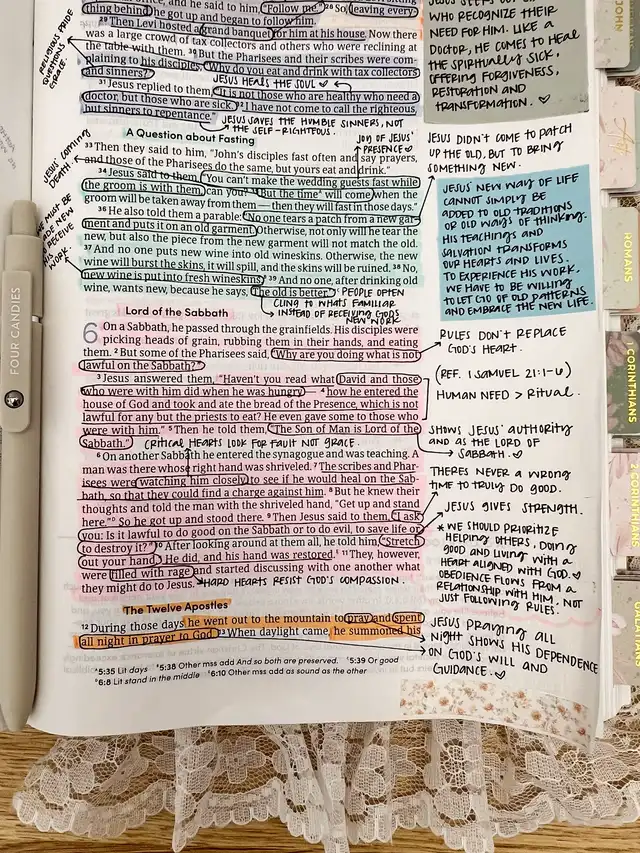 office, and he said to him, "Follow me." 28 So, leaving every-
thing behind, he got up and began to follow him.
29 Then Levi hosted a grand banquet for him at his house. Now there
was a large crowd of tax collectors and others who were reclining at
the table with them. 30 But the Pharisees and their scribes were com-
plaining to his disciples, "Why do you eat and drink with tax collectors
and sinners?"
31 Jesus replied to them, "It is not those who are healthy who need a
doctor, but those who are sick. 32 I have not come to call the righteous,
but sinners to repentance."
RELIGIOUS PRIDE
QUESTIONS
GRACE.
JESUS HEALS THE SOUL
JESUS SAVES THE HUMBLE SINNERS, NOT
THE SELF-RIGHTEOUS.
WHO RECOGNIZE THEIR
NEED FOR HIM. LIKE A
DOCTOR, HE COMES TO HEAL
THE SPIRITUALLY SICK,
OFFERING FORGIVENESS,
RESTORATION AND
TRANSFORMATION. ♡
A Question about Fasting
33 Then they said to him, "John's disciples fast often and say prayers,
and those of the Pharisees do the same, but yours eat and drink."
34 Jesus said to them, "You can't make the wedding guests fast while
the groom is with them, can you? 35 But the time will come when the
groom will be taken away from them — then they will fast in those days."
36 He also told them a parable: "No one tears a patch from a new gar-
ment and puts it on an old garment. Otherwise, not only will he tear the
new, but also the piece from the new garment will not match the old.
37 And no one puts new wine into old wineskins. Otherwise, the new
wine will burst the skins, it will spill, and the skins will be ruined. 38 No,
new wine is put into fresh wineskins. 39 And no one, after drinking old
wine, wants new, because he says, 'The old is better.'"
JESUS' COMING
DEATH.
WE MUST BE
MADE NEW
TO RECEIVE
HIS
WORK.
JOY OF JESUS'
PRESENCE ♡
PEOPLE OFTEN
CLING TO WHAT'S FAMILIAR
INSTEAD OF RECEIVING GOD'S
NEW WORK
JESUS DIDN'T COME TO PATCH
UP THE OLD, BUT TO BRING
SOMETHING NEW.
JESUS' NEW WAY OF LIFE
CANNOT SIMPLY BE
ADDED TO OLD TRADITIONS
OR OLD WAYS OF THINKING.
HIS TEACHINGS AND
SALVATION TRANSFORMS
OUR HEARTS AND LIVES.
TO EXPERIENCE HIS WORK,
WE HAVE TO BE WILLING
TO LET GO OF OLD PATTERNS
AND EMBRACE THE NEW LIFE.
Lord of the Sabbath
6 On a Sabbath, he passed through the grainfields. His disciples were
picking heads of grain, rubbing them in their hands, and eating
them. 2 But some of the Pharisees said, "Why are you doing what is not
lawful on the Sabbath?"
3 Jesus answered them, "Haven't you read what David and those
who were with him did when he was hungry — 4 how he entered the
house of God and took and ate the bread of the Presence, which is not
lawful for any but the priests to eat? He even gave some to those who
were with him." 5 Then he told them, "The Son of Man is Lord of the
Sabbath."
CRITICAL HEARTS LOOK FOR FAULT NOT GRACE.
6 On another Sabbath he entered the synagogue and was teaching. A
man was there whose right hand was shriveled. 7 The scribes and Phar-
isees were watching him closely, to see if he would heal on the Sab-
bath, so that they could find a charge against him. 8 But he knew their
thoughts and told the man with the shriveled hand, "Get up and stand
here." So he got up and stood there. 9 Then Jesus said to them, "I ask
you: Is it lawful to do good on the Sabbath or to do evil, to save life or
to destroy it?" 10 After looking around at them all, he told him, "Stretch
out your hand." He did, and his hand was restored. 11 They, however,
were filled with rage and started discussing with one another what
they might do to Jesus.
HARD HEARTS RESIST GOD'S COMPASSION.
RULES DON'T REPLACE
GOD'S HEART.
(REF. 1 SAMUEL 21:1-6)
HUMAN NEED > RITUAL.
SHOWS JESUS' AUTHORITY
AND AS THE LORD OF
SABBATH. ♡
THERE'S NEVER A WRONG
TIME TO TRULY DO GOOD.
JESUS GIVES STRENGTH.
* WE SHOULD PRIORITIZE
HELPING OTHERS. DOING
GOOD AND LIVING WITH A
HEART ALIGNED WITH GOD. ♡
OBEDIENCE FLOWS FROM A
RELATIONSHIP WITH HIM, NOT
JUST FOLLOWING RULES.
The Twelve Apostles
12 During those days he went out to the mountain to pray and spent
all night in prayer to God. 13 When daylight came, he summoned his
JESUS PRAYING ALL
NIGHT SHOWS HIS DEPENDENCE
ON GOD'S WILL AND
GUIDANCE. ♡
5:35 Lit days 5:38 Other mss add And so both are preserved. 5:39 Or good
6:8 Lit stand in the middle 6:10 Other mss add as sound as the other
FOUR CANDIES
JOHN
ROMANS
1 CORINTHIANS
2 CORINTHIANS
GALATIANS